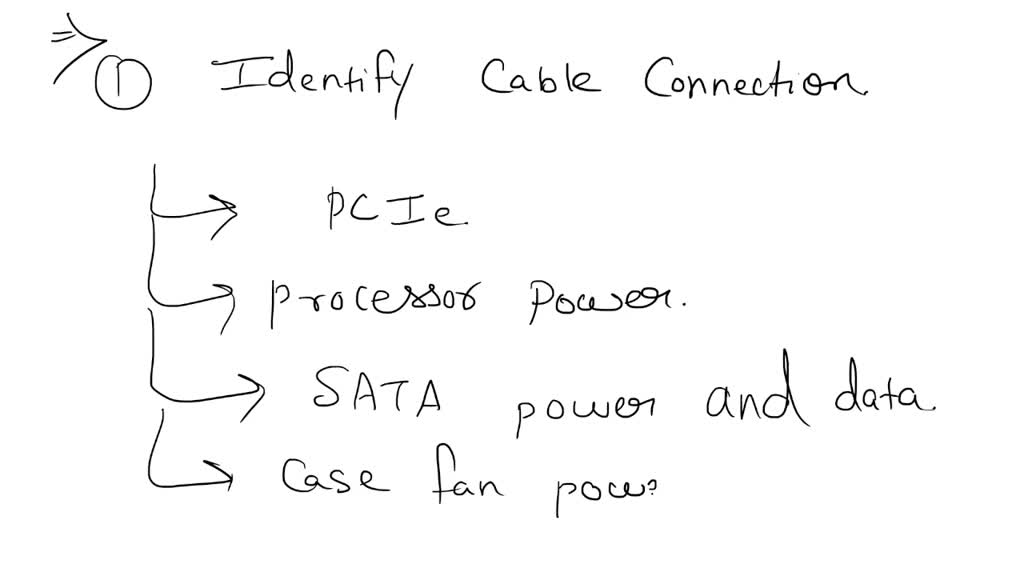 ⇒ ① Identify Cable Connection.
→ PCIe
→ processor Power.
→ SATA power and data.
→ Case fan pow